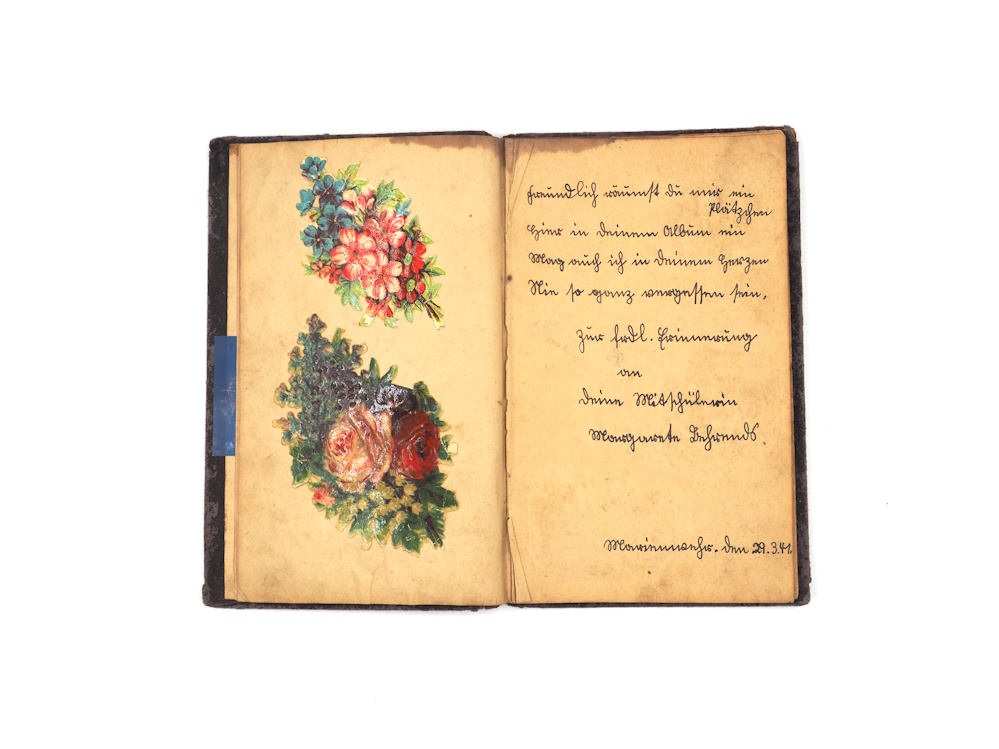 Freundlich räumst du mir ein
Plätzchen
Hier in deinem Album ein
Mag auch ich in deinem Herzen
Nie so ganz vergessen sein.
Zur frdl. Erinnerung
an
deine Mitschülerin
Margarete Behrends.
Marienwehr. den 29.3.41.